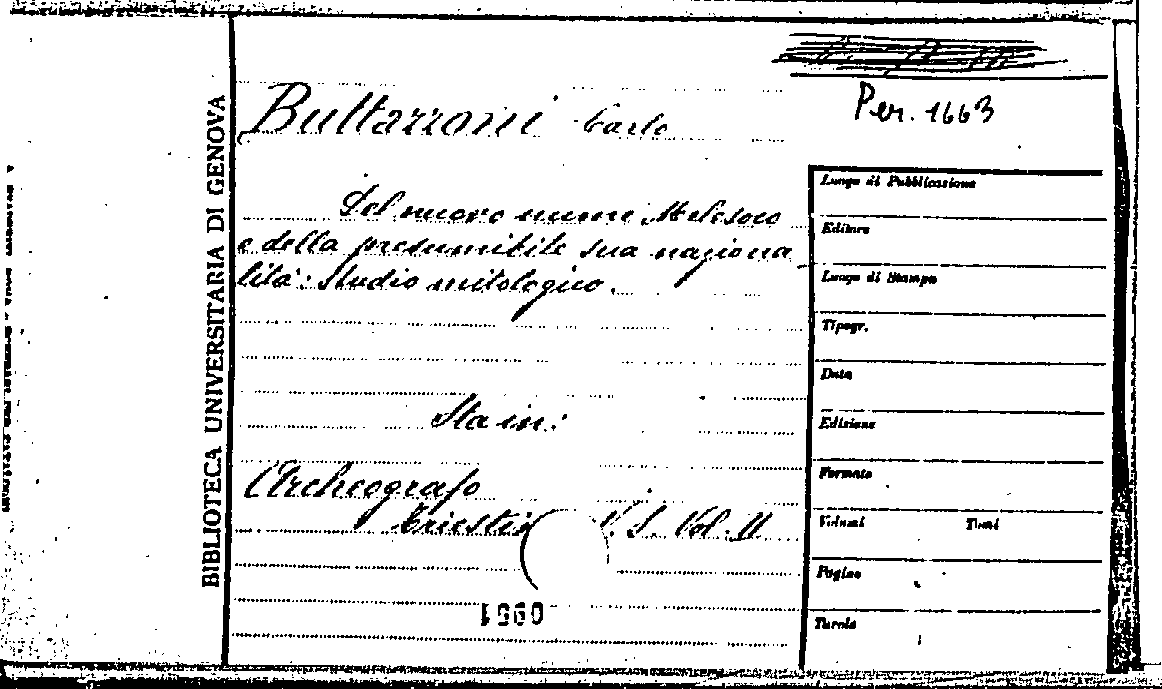 Per. 1663
BIBLIOTECA UNIVERSITARIA DI GENOVA
Buttazzoni Carlo
Del nuovo nume Melesoco
e della presumibile sua naziona
lità: Studio mitologico.
Sta in:
Archeografo
Triestin N. S. Vol. II
0951
Luogo di Pubblicazione
Editore
Luogo di Stampa
Tipogr.
Data
Edizione
Formato
Volumi Tomi
Pagine
Tavole